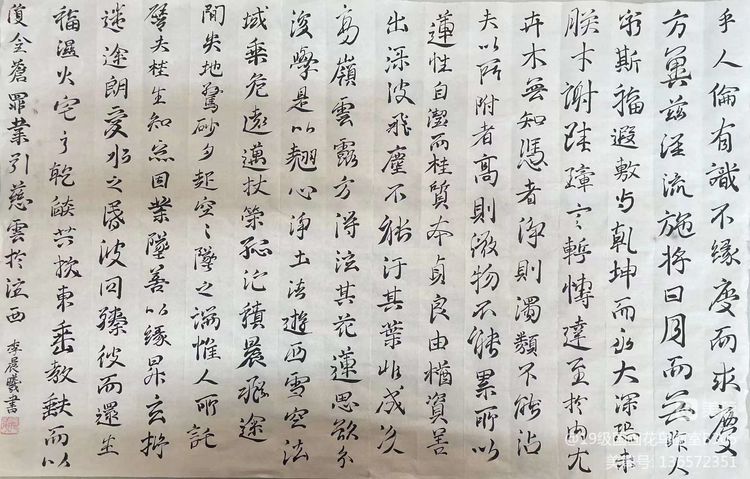 乎人倫有識不緣慶而求慶
方冀茲經流施將日月而無
窮斯福遐敷與乾坤而永大深
朕才謝珪璋言慚博達至於內尤
卉木無知憑者淨則濁類不能沾
夫以所附者高則微物不能累所以
蓮性自潔而桂質本貞良由猶資善
出淥波飛塵不能汙其葉非成次
高嶺雲露方得泫其花蓮思欲分
後學是以翹心淨土法遊西雪空法
域乘危遠邁杖策孤征積晨飛途
間失地驚砂夕起空〻墜之端惟人所託
譬夫桂生知惡因業墜善以緣昇玄拯
迷途朗愛水之昏波同臻彼而還生
福濕火宅之乾燄共拔東垂教缺而以
復全蒼罪業引慈雲於西
李晨曦書
美篇号: 135572351